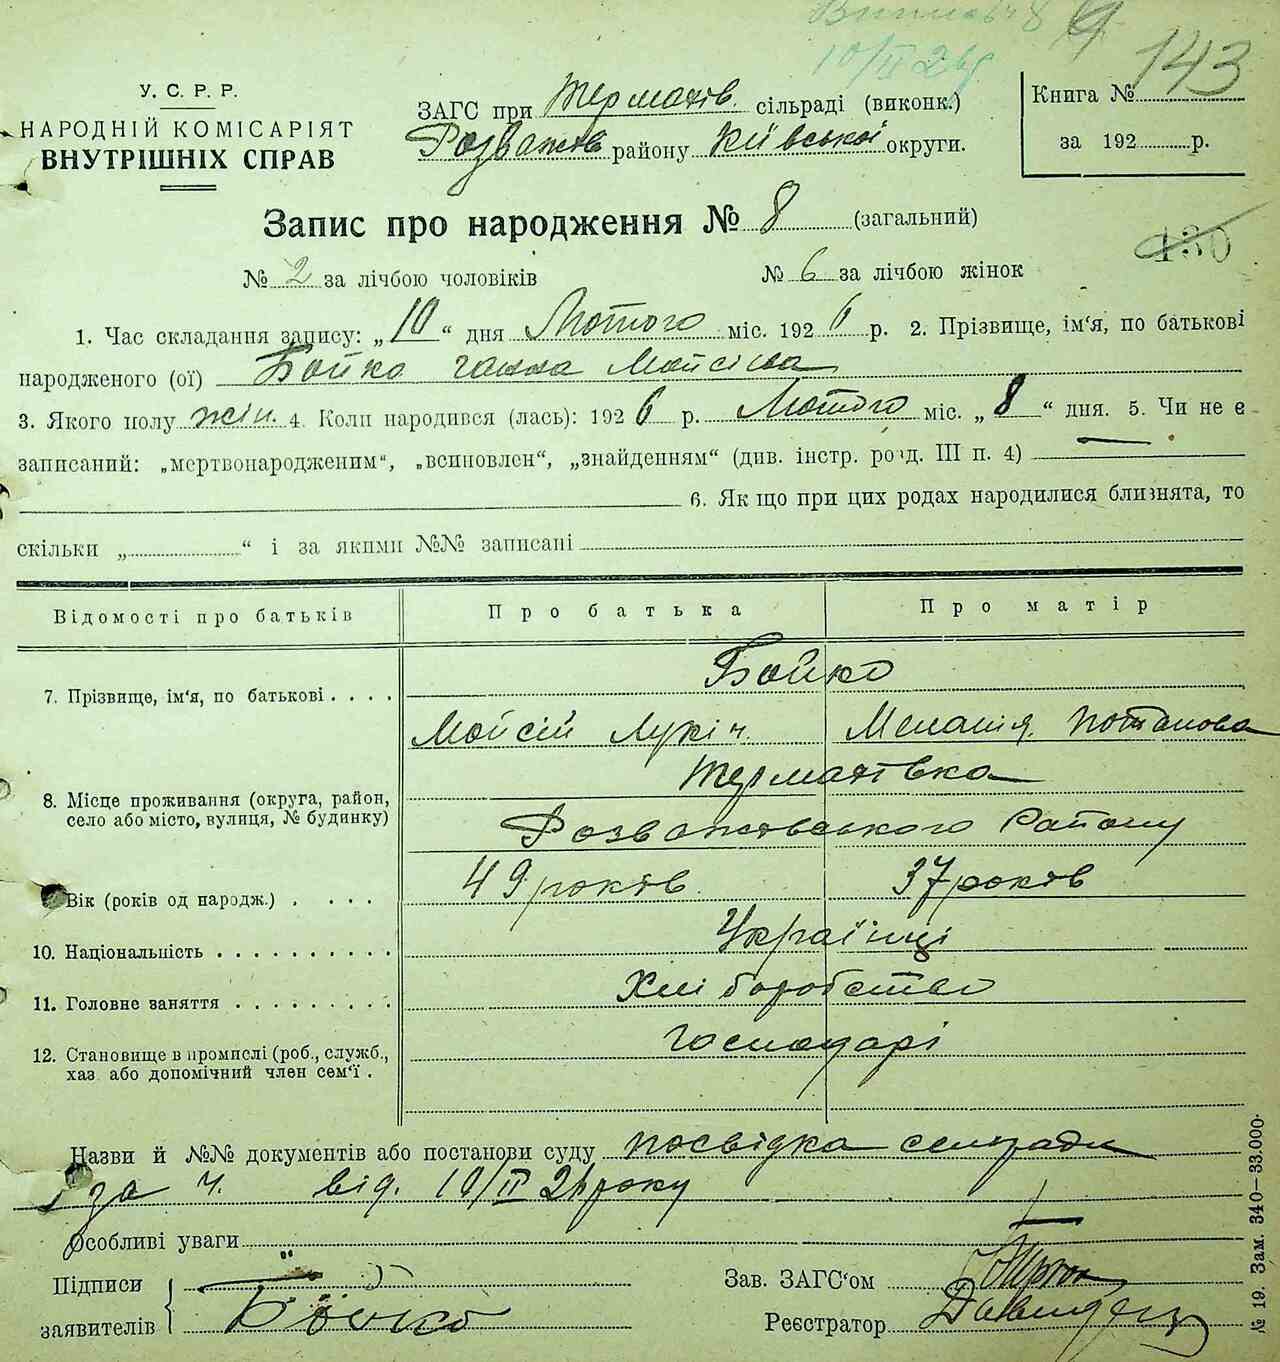 143
У. С. Р. Р.
НАРОДНІЙ КОМІСАРІЯТ
ВНУТРІШНІХ СПРАВ
ЗАГС при Термахів. сільраді (виконк.)
Розважів району Київської округи.
Книга №
за 192 р.
Запис про народження № 8 (загальний)
130
№ 2 за лічбою чоловіків № 6 за лічбою жінок
1. Час складання запису: „10“ дня Лютого міс. 1926 р. 2. Прізвище, ім‘я, по батькові
народженого (ої) Бойко Ганна Мойсіва
3. Якого полу жін. 4. Коли народився (лась): 1926 р. Лютого міс. „8“ дня. 5. Чи не є
записаний: „мертвонародженим“, „всиновлен“, „знайденням“ (див. інстр. розд. III п. 4) —
6. Якщо при цих родах народилися близнята, то
скільки „ “ і за якими №№ записані
Відомості про батьків Про батька Про матір
Бойко
7. Прізвище, ім‘я, по батькові . . . .
Мойсій Лукіч. Меланія Потапова
Термахівка
8. Місце проживання (округа, район,
село або місто, вулиця, № будинку)
Розважівського Району
49 років 37 років
Вік (років од народж.) . . . .
10. Національність . . . . . . . . . . Українці
11. Головне заняття . . . . . . . . . Хліборобство
12. Становище в промислі (роб., служб.,
хаз. або допомічний член сем‘ї . Господарі
Назви й №№ документів або постанови суду посвідка сельради
за ч. від. 10/II 26 року
Особливі уваги
Підписи
заявителів Бойко
Зав. ЗАГС‘ом
Реєстратор
№ 19. Зам. 340—33.000.